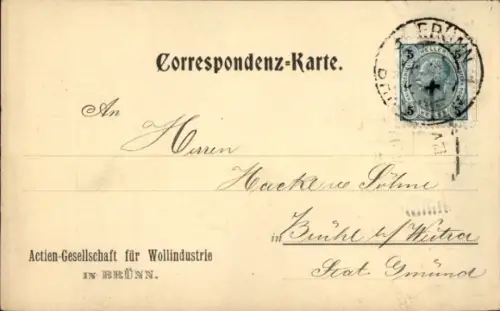 BRÜNN
5 5
Correspondenz-Karte.
An
Herren
Hackl u Söhne
in Brühl b/ Weitra
Stat Gmünd
Actien-Gesellschaft für Wollindustrie
IN BRÜNN.